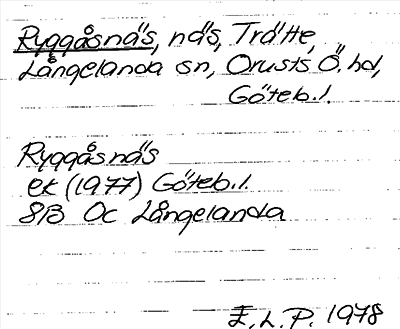 Ryggåsnäs, näs, Trätte,
Långelanda sn, Orusts Ö. hd,
Göteb.l.
Ryggåsnäs
ek (1977) Göteb.l.
8B Oc Långelanda
E.L.P. 1978